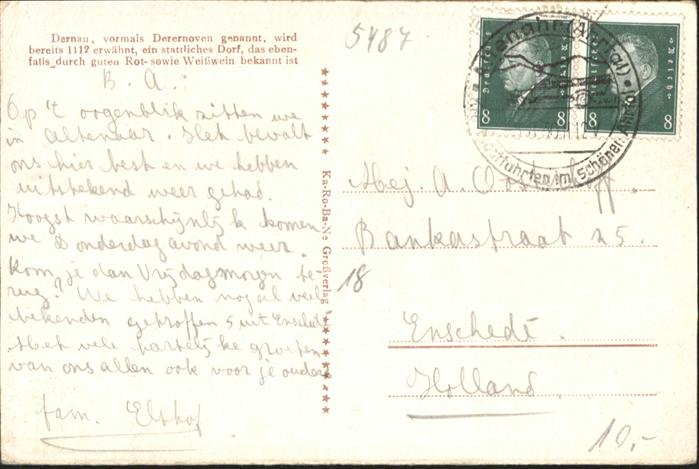 Dernau, vormals Derernoven genannt, wird
bereits 1112 erwähnt, ein stattliches Dorf, das eben-
falls durch guten Rot- sowie Weißwein bekannt ist
B. A.
Op 't oogenblik zitten we
in Altenaar. Het bevalt
ons hier best en we hebben
uitstekend weer gehad.
Hoogst waarschijnlijk komen
we Donderdagavond weer.
Kom je dan Vrijdagmorgen te-
rug? We hebben nogal veel
bekenden getroffen 5 uit Enschede
Met vele hartelijke groeten
van ons allen ook voor je ouders
fam. Elshof
Ka-Ro-Ba-Ne Großverlag
5487
Deutsches Reich
8 8
8 8
Altenahr (Ahrtal)
im schönen Ahrtal
Mej. A. Oosterhoff
Bankastraat 25.
18
Enschede.
Holland
10,-